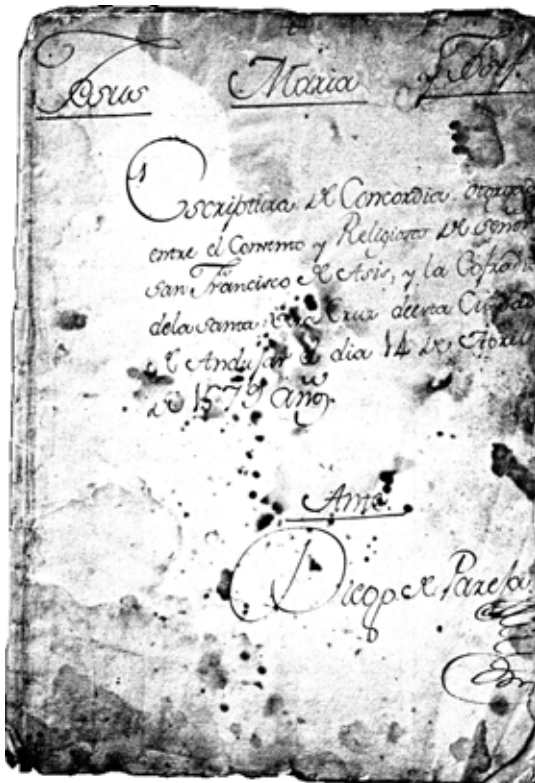 Jesus Maria y Josef.
Escriptura de Concordia otorgada
entre el Convento y Religiosos de señor
san Francisco de Asis, y la Cofradia
dela santa Cruz desta Ciudad
de Andujar el dia 14 de Abril
de 1579 años
Ante
Diego de Pareja